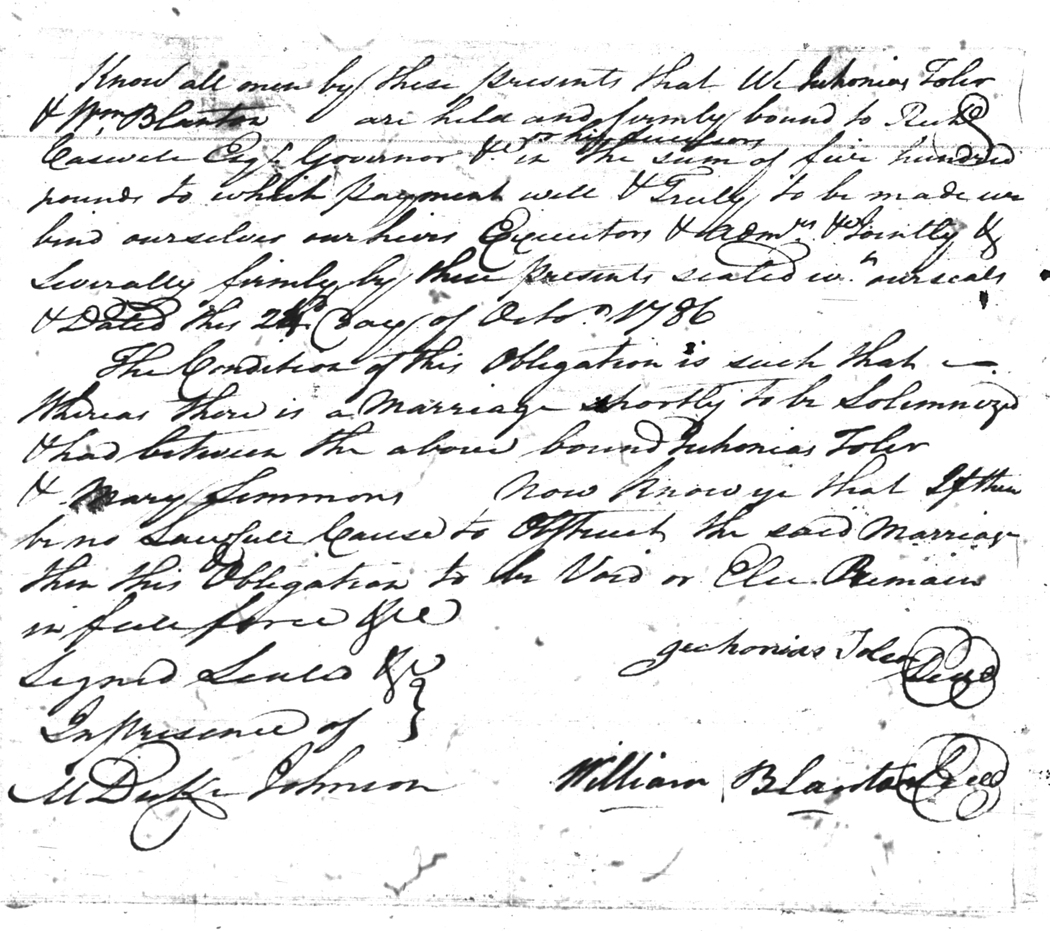 Know all men by these presents that We Jechonias Toler
& Wm Blanton are held and firmly bound to Richd
or his successors
Caswell Esqr Governor &c in the sum of five hundred
pounds to which payment well & Truly to be made we
bind ourselves our heirs Executors & admrs &c Jointly &
Severally firmly by these presents sealed wth our seals
& Dated this Day of Octor 1786
The Condition of this Obligation is such that —
Whereas there is a Marriage shortly to be Solemnized
& had between the above bound Jechonias Toler
& Mary Simmons Now Know ye that If there
be no Lawfull Cause to Obstruct the said Marriage
then this Obligation to be Void or Else Remain
in full force &c
Signed Seald &c
In presence of
Jechonias Toler Seal
McDuke Johnson
William Blanton Seal